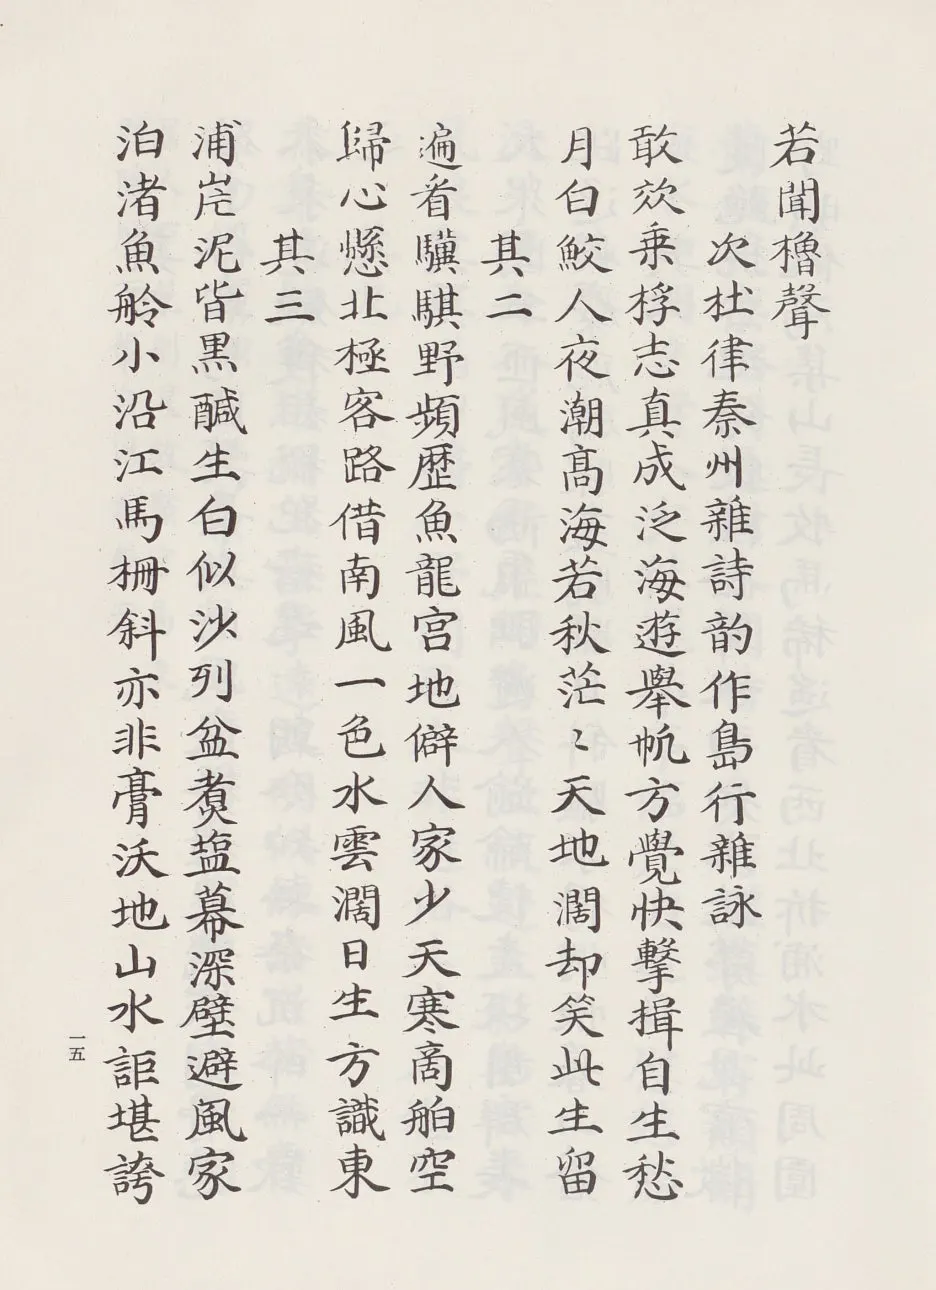 若聞櫓聲
次杜律秦州雜詩韵作島行雜詠
敢效乗桴志真成泛海遊舉帆方覺快擊揖自生愁
月白鮫人夜潮髙海若秋茫〻天地濶却笑此生留
其二
遍看驥騏野頻歴魚龍宫地僻人家少天寒商舶空
歸心懸北極客路借南風一色水雲濶日生方識東
其三
浦岸泥皆黒鹹生白似沙列盆煑塩幕深壁避風家
泊渚魚舲小沿江馬柵斜亦非膏沃地山水詎堪誇
一五